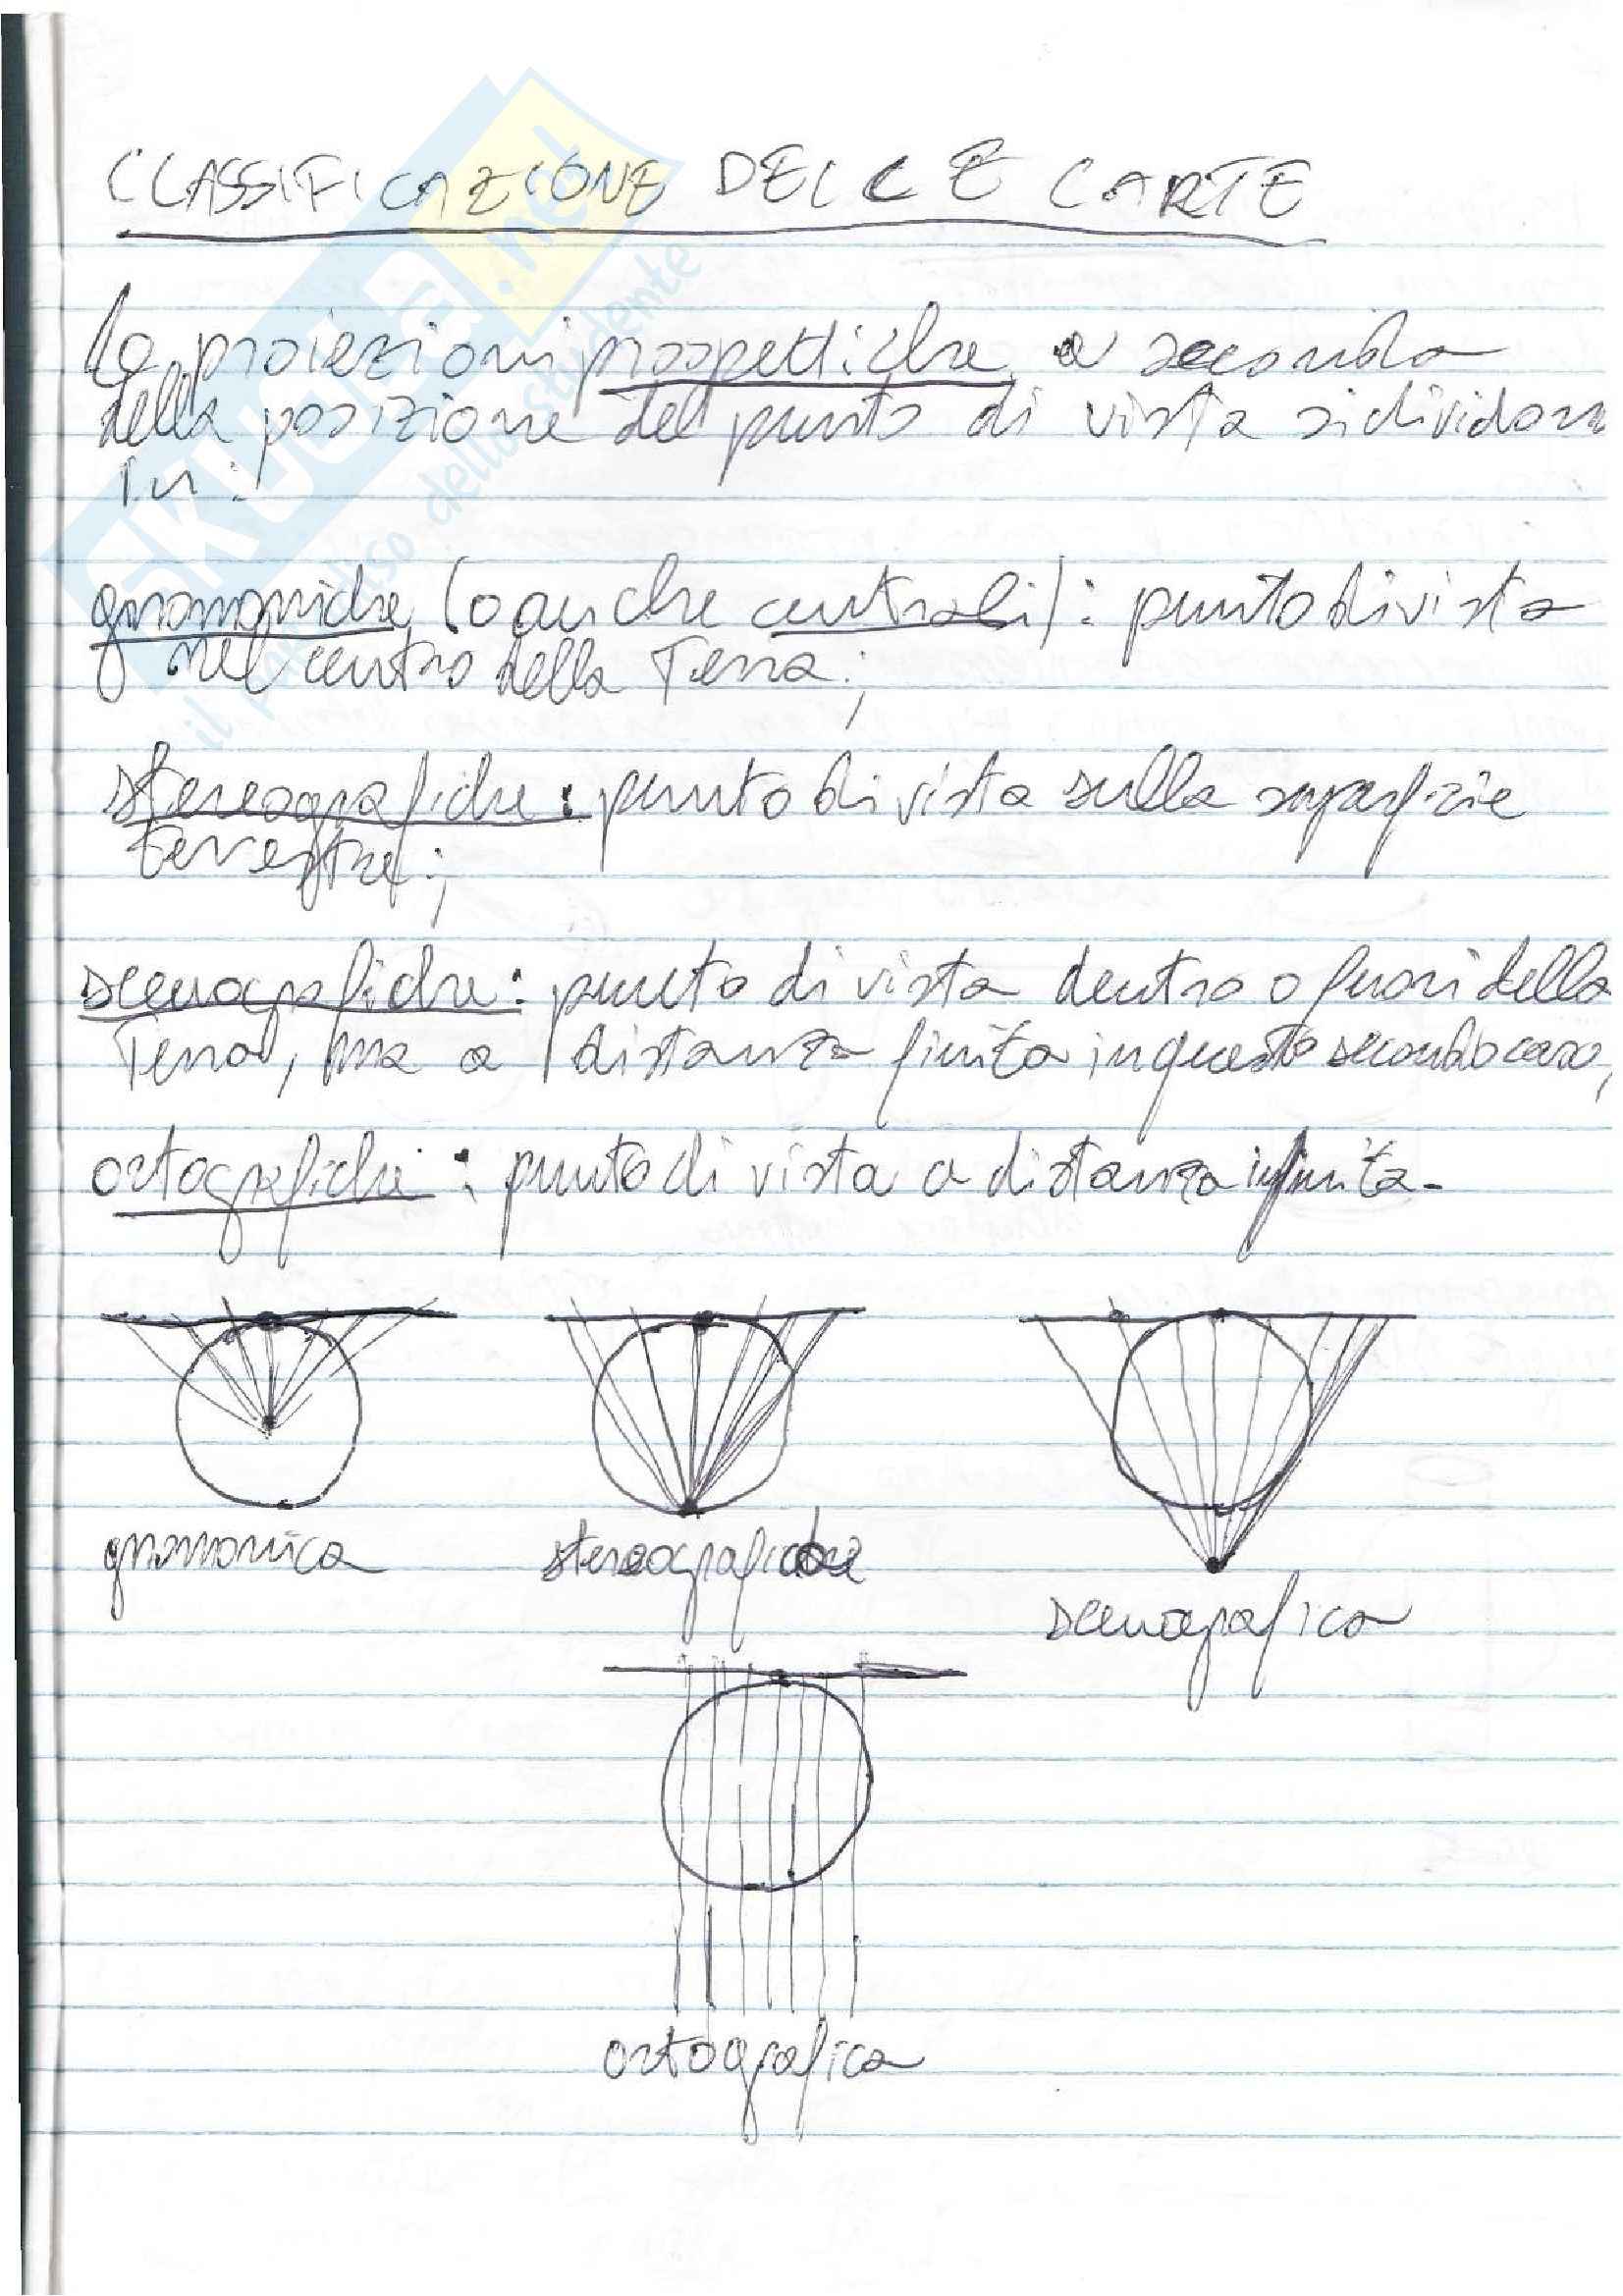 CLASSIFICAZIONE DELLE CARTE
Le proiezioni prospettiche a seconda
della posizione del punto di vista si dividono
in:
gnomoniche (o anche centrali): punto di vista
nel centro della Terra;
stereografiche: punto di vista sulla superfizie
terrestre;
scenografiche: punto di vista dentro o fuori della
Terra, ma a distanza finita in questo secondo caso,
ortografiche: punto di vista a distanza infinita.
gnomonica
stereografiche
scenografica
ortografica
skuola.net
il paradiso dello studente